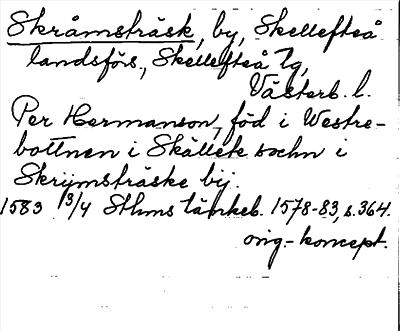 Skråmsträsk, by, Skellefteå
landsförs., Skellefteå tg,
Västerb. l.
Per Hermanson, föd i Westre-
bottnen i Skällek sochn i
Skrijmsträske bij.
1583 3/4 Sthms tänkeb. 1578-83, s. 364.
orig.-koncept.